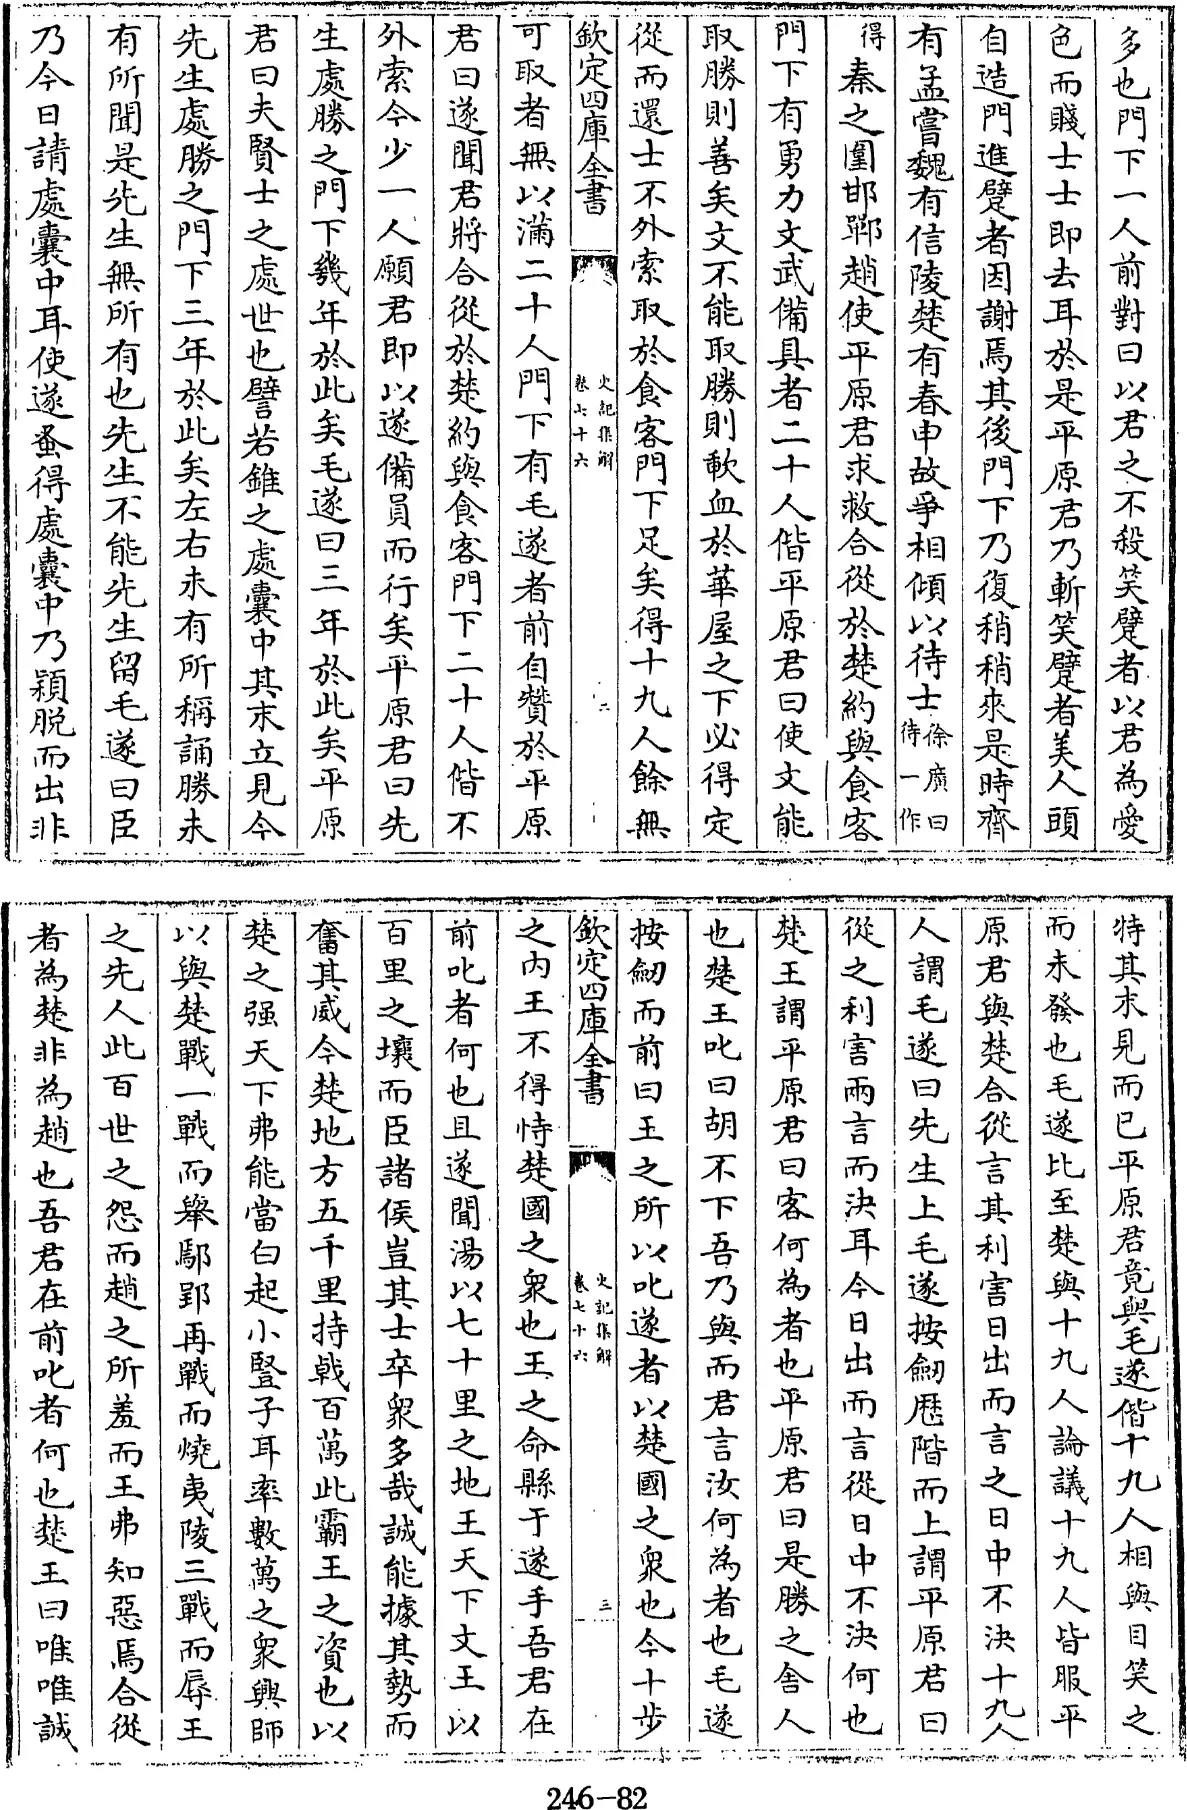 多也門下一人前對曰以君之不殺笑躄者以君為愛
色而賤士士即去耳於是平原君乃斬笑躄者美人頭
自造門進躄者因謝焉其後門下乃復稍稍來是時齊
有孟嘗魏有信陵楚有春申故爭相傾以待士徐廣曰待一作
得秦之圍邯鄲趙使平原君求救合從於楚約與食客
門下有勇力文武備具者二十人偕平原君曰使文能
取勝則善矣文不能取勝則歃血於華屋之下必得定
從而還士不外索取於食客門下足矣得十九人餘無
欽定四庫全書 史記集解卷七十六 二
可取者無以滿二十人門下有毛遂者前自贊於平原
君曰遂聞君將合從於楚約與食客門下二十人偕不
外索今少一人願君即以遂備員而行矣平原君曰先
生處勝之門下幾年於此矣毛遂曰三年於此矣平原
君曰夫賢士之處世也譬若錐之處囊中其末立見今
先生處勝之門下三年於此矣左右未有所稱誦勝未
有所聞是先生無所有也先生不能先生留毛遂曰臣
乃今日請處囊中耳使遂蚤得處囊中乃穎脫而出非
特其末見而已平原君竟與毛遂偕十九人相與目笑之
而未發也毛遂比至楚與十九人論議十九人皆服平
原君與楚合從言其利害日出而言之日中不決十九人
人謂毛遂曰先生上毛遂按劒歷階而上謂平原君曰
從之利害兩言而決耳今日出而言從日中不決何也
楚王謂平原君曰客何為者也平原君曰是勝之舍人
也楚王叱曰胡不下吾乃與而君言汝何為者也毛遂
按劒而前曰王之所以叱遂者以楚國之衆也今十步
欽定四庫全書 史記集解卷七十六 三
之内王不得恃楚國之衆也王之命縣于遂手吾君在
前叱者何也且遂聞湯以七十里之地王天下文王以
百里之壤而臣諸侯豈其士卒衆多哉誠能據其勢而
奮其威今楚地方五千里持戟百萬此霸王之資也以
楚之强天下弗能當白起小豎子耳率數萬之衆興師
以與楚戰一戰而舉鄢郢再戰而燒夷陵三戰而辱王
之先人此百世之怨而趙之所羞而王弗知惡焉合從
者為楚非為趙也吾君在前叱者何也楚王曰唯唯誠
246-82